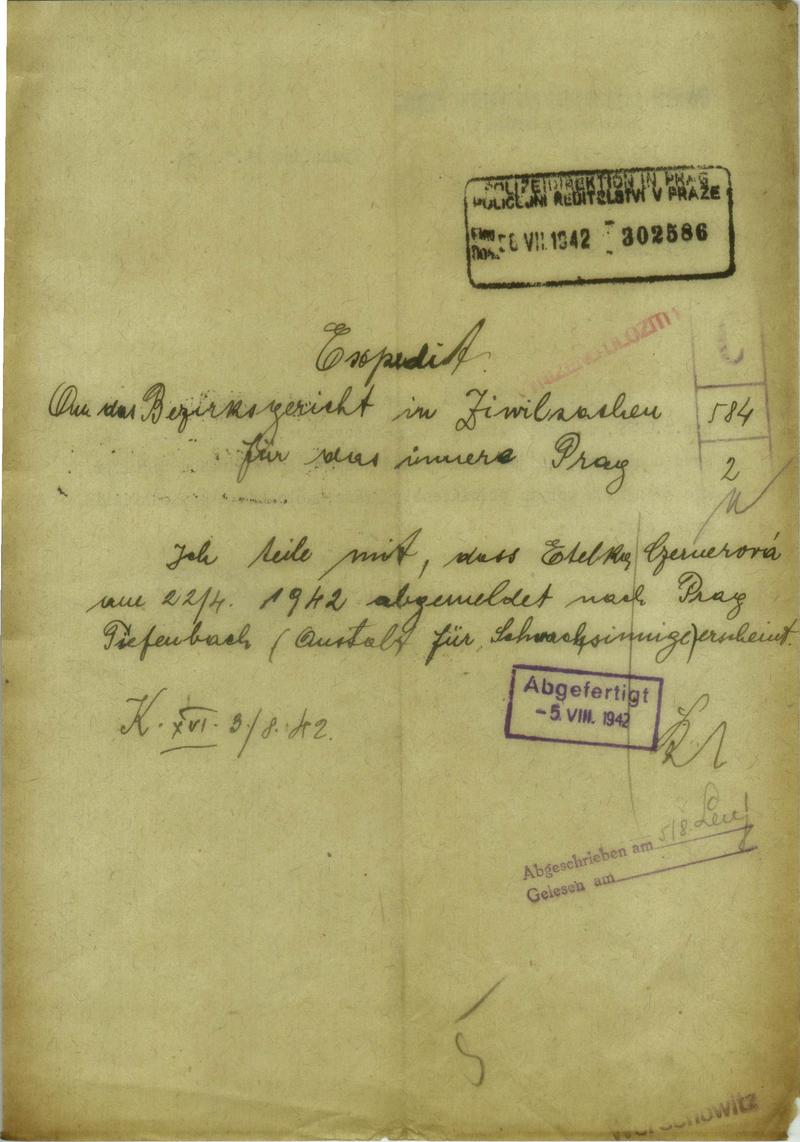 POLIZEIDIREKTION IN PRAG
POLICEJNÍ ŘEDITELSTVÍ V PRAZE
VII. 1942 302586
Expedit.
An das Bezirksgericht in Ziwilsachen
584
für das innere Prag
2
Ich teile mit, dass Etelka Czernerová
am 22/4. 1942 abgemeldet nach Prag
Tiefenbach (Anstalt für Schwachsinnige) erscheint.
Abgefertigt
-5. VIII. 1942
K. XVI. 3/8. 42.
Abgeschrieben am 5/8.
Gelesen am
Werschowitz